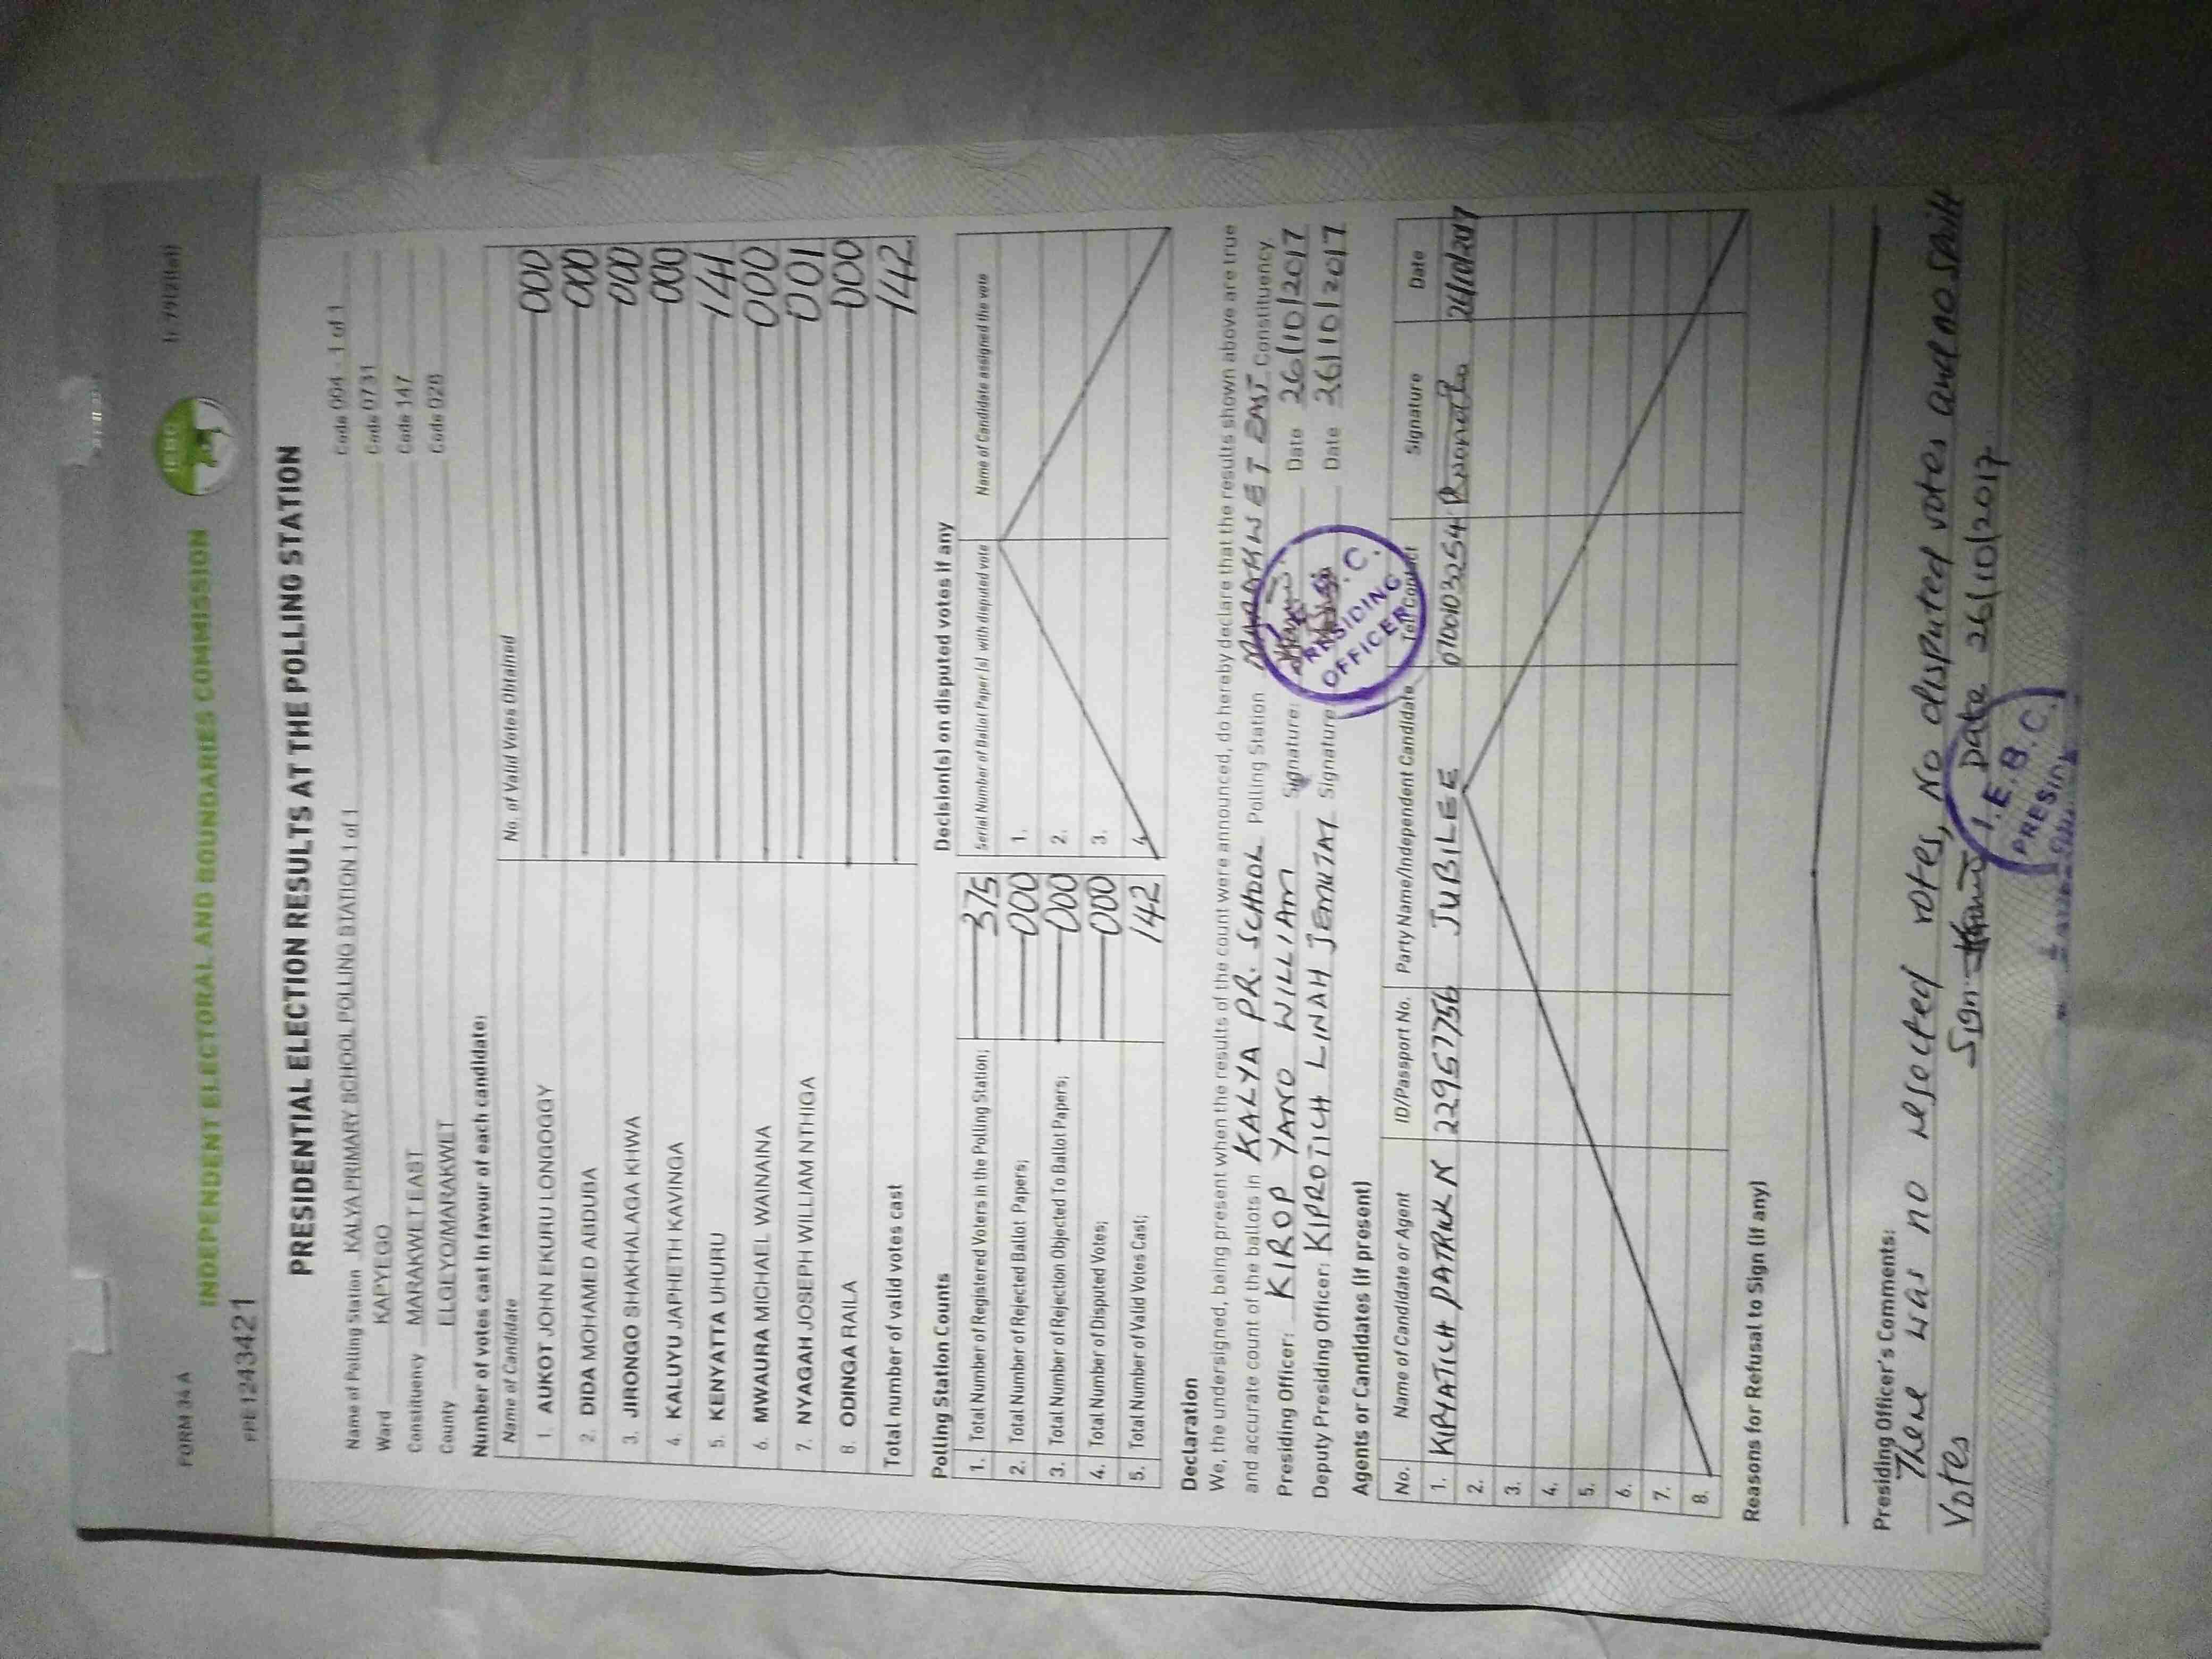 FORM 34 A
INDEPENDENT ELECTORAL AND BOUNDARIES COMMISSION
IEBC
PRE1243421
PRESIDENTIAL ELECTION RESULTS AT THE POLLING STATION
Name of Polling Station KALYA PRIMARY SCHOOL POLLING STATION 1 of 1 Code 004 - 1 of 1
Ward KAPYEGO Code 0731
Constituency MARAKWET EAST Code 147
County ELGEYO/MARAKWET Code 028
Number of votes cast in favour of each candidate:
Name of Candidate No. of Valid Votes Obtained
1. AUKOT JOHN EKURU LONGOGGY 000
2. DIDA MOHAMED ABDUBA 000
3. JIRONGO SHAKHALAGA KHWA 000
4. KALUYU JAPHETH KAVINGA 000
5. KENYATTA UHURU 141
6. MWAURA MICHAEL WAINAINA 000
7. NYAGAH JOSEPH WILLIAM NTHIGA 001
8. ODINGA RAILA 000
Total number of valid votes cast 142
Polling Station Counts
1. Total Number of Registered Voters in the Polling Station; 375
2. Total Number of Rejected Ballot Papers; 000
3. Total Number of Rejection Objected To Ballot Papers; 000
4. Total Number of Disputed Votes; 000
5. Total Number of Valid Votes Cast; 142
Decision(s) on disputed votes if any
Serial Number of Ballot Paper (s) with disputed vote Name of Candidate assigned the vote
1.
2.
3.
4.
Declaration
We, the undersigned, being present when the results of the count were announced, do hereby declare that the results shown above are true
and accurate count of the ballots in KALYA PR. SCHOOL Polling Station MARAKWET EAST Constituency.
Presiding Officer: KIROP YANO WILLIAM Signature: Date 26/10/2017
Deputy Presiding Officer: KIPROTICH LINAH JEMUTAI Signature Date 26/10/2017
I.E.B.C.
PRESIDING
OFFICER
Agents or Candidates (if present)
No. Name of Candidate or Agent ID/Passport No. Party Name/Independent Candidate Tel Contact Signature Date
1. KIPYATICH PATRICK N 22957756 JUBILEE 26/10/2017
2.
3.
4.
5.
6.
7.
8.
Reasons for Refusal to Sign (if any)
Presiding Officer's Comments:
There was no rejected votes, No disputed votes and no spoilt
Votes
Sign Date 26/10/2017
I.E.B.C.